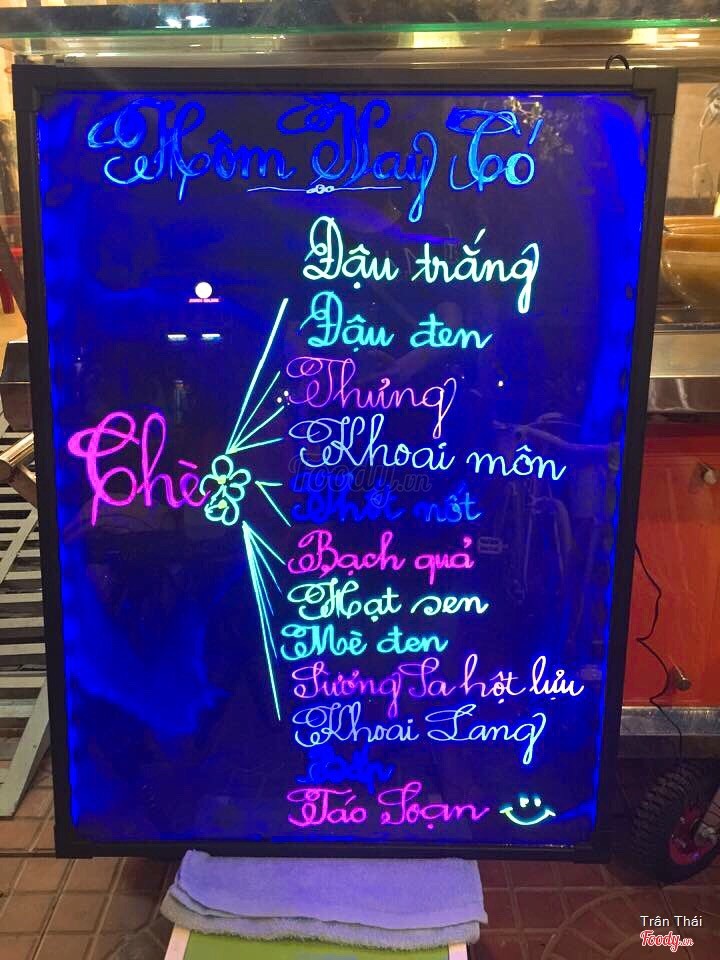 Hôm Nay Có
Đậu trắng
Đậu đen
Thưng
Chè
Khoai môn
Thốt nốt
Bạch quả
Hạt sen
Mè đen
Sương Sa hột lựu
Khoai Lang
Táo Soạn
Foody.vn
Trân Thái
Foody.vn